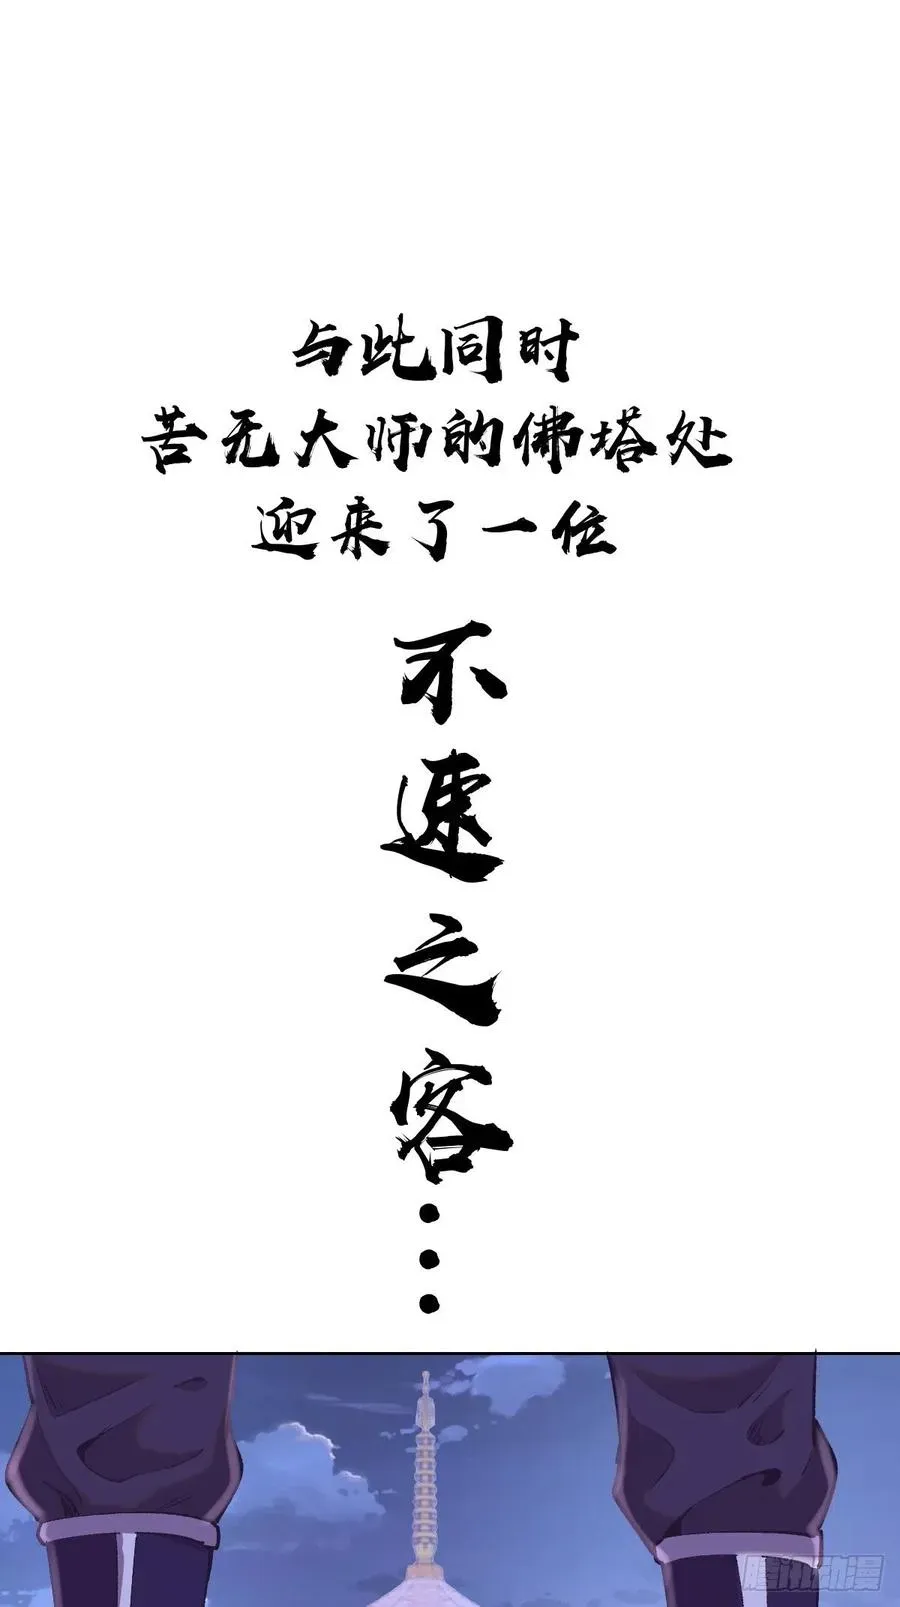 与此同时
苦无大师的佛塔处
迎来了一位
不速之客…
腾讯动漫